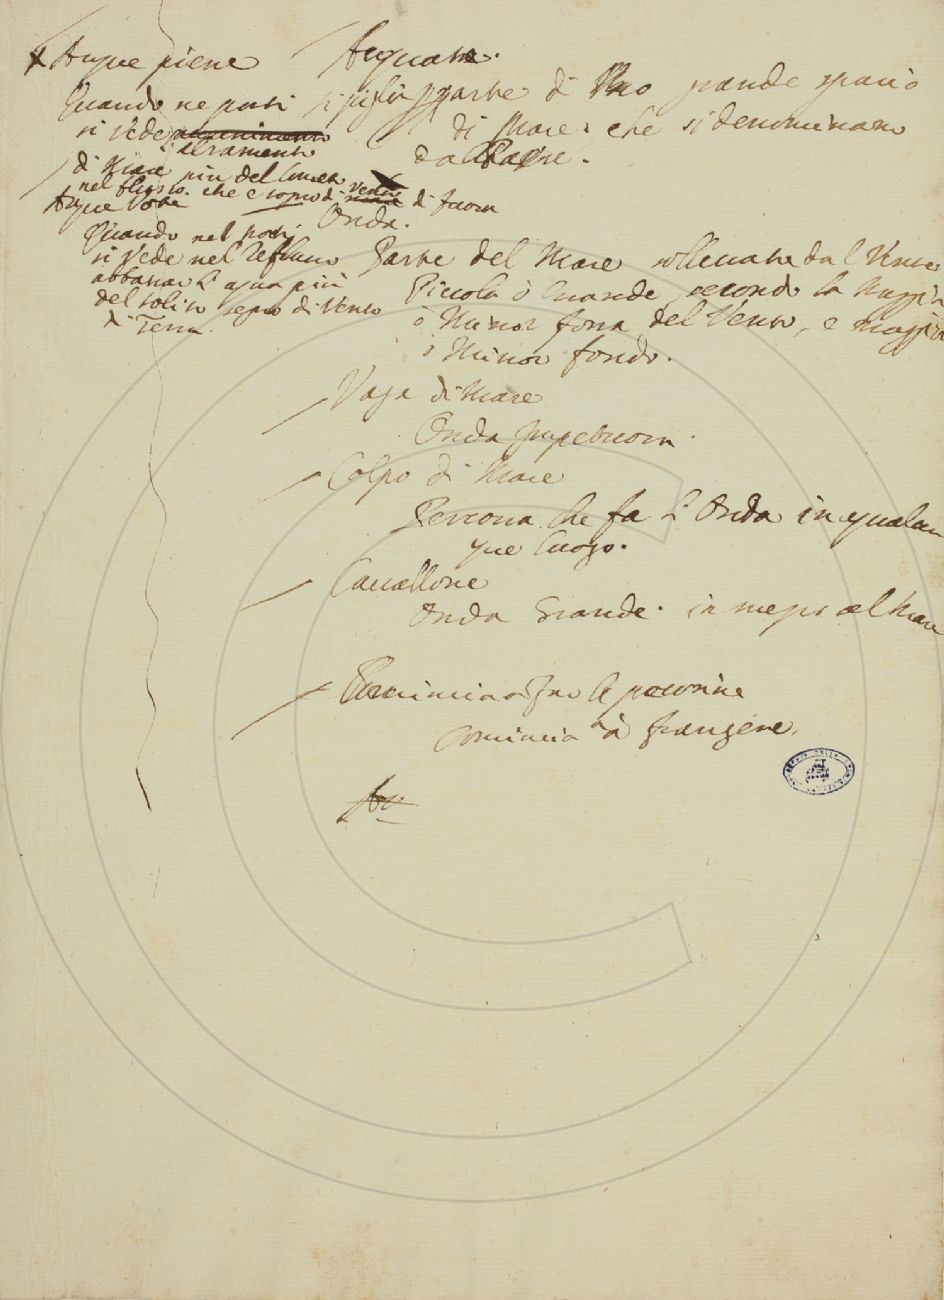 Acque piene
Quando ne porti
si vede
l'alzamento
di Mare più del
nel flusso che è segno di vento di fuora
Acque
Quando nel porti
si vede nel reflusso
abbassar l'aqua più
del solito segno di Vento
di Terra
Acquate.
si piglia parte di Uno grande spatio
di Mare che si denominano
dal Paese.
Onda.
Parte del Mare sollevata dal Vento
Piccola ò Grande secondo la Maggior
ò Minor forza del Vento, e maggior
ò Minor fondo.
Vaga di Mare
Onda
Colpo di Mare
Percossa che fa l'Onda in qualun
que luogo.
Cavallone
Onda Grande in mezo al Mare
le pecorine
Comincia à frangere.